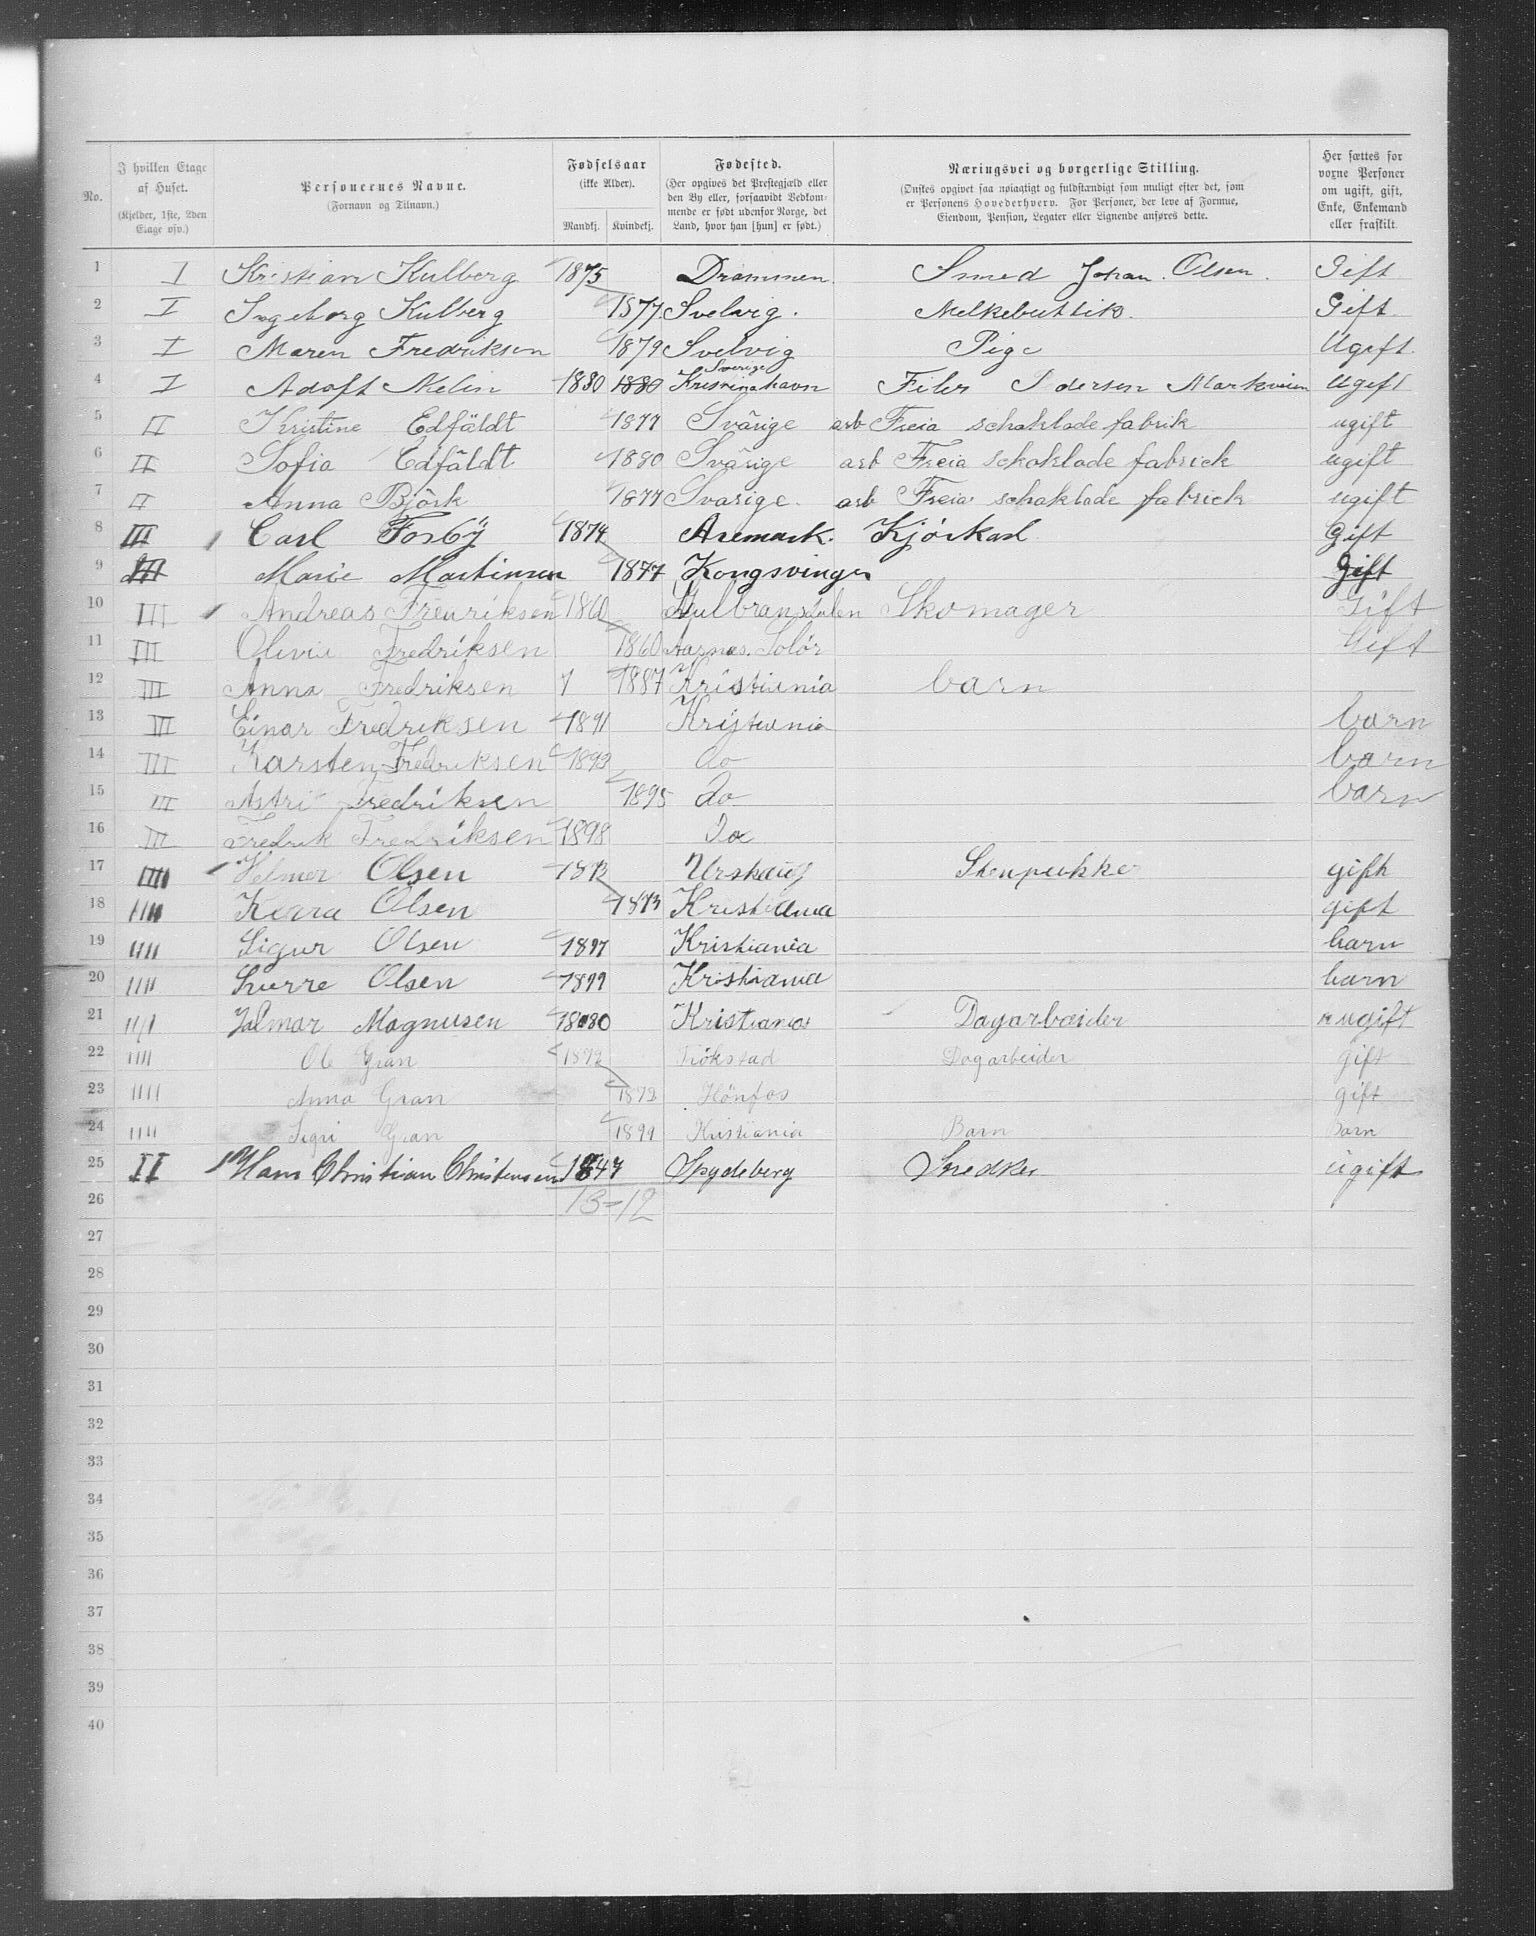 No.
I hvilken Etage af Huset. (Kjelder, 1ste, 2den Etage osv.)
Personernes Navne. (Fornavn og Tilnavn.)
Fødselsaar (ikke Alder). Mandkj. Kvindekj.
Fødested. (Her opgives det Prestegjæld eller den By eller, forsaavidt Vedkommende er født udenfor Norge, det Land, hvor han [hun] er født.)
Næringsvei og borgerlige Stilling. (Ønskes opgivet saa nøiagtigt og fuldstændigt som muligt efter det, som er Personens Hovederhverv. For Personer, der leve af Formue, Eiendom, Pension, Legater eller Lignende anføres dette.)
Her sættes for voxne Personer om ugift, gift, Enke, Enkemand eller fraskilt.
1 I Kristian Kulberg 1875 Drammen Smed Johan Olsen Gift
2 I Ingeborg Kulberg 1877 Svelvig Melkebuttik Gift
3 I Maren Fredriksen 1879 Svelvig Pige Ugift
4 I Adolf Melin 1880 1880 Sverige Kristinahavn Filer Markveien Ugift
5 II Kristine Edfäldt 1877 Svärige arb Freia schoklade fabrik ugift
6 II Sofia Edfäldt 1880 Svärige arb Freia schoklade fabrick ugift
7 II Anna Björk 1877 Svärige arb Freia schoklade fabrick ugift
8 III Carl Fosby 1874 Aremark Kjörkarl Gift
9 III Marie Martinsen 1877 Kongsvinger Gift
10 III Andreas Fredriksen 1860 Gulbransdalen Skomager Gift
11 III Olivia Fredriksen 1860 Aarnes Solör Gift
12 III Anna Fredriksen 1887 Kristiania barn
13 III Einar Fredriksen 1891 Kristiania barn
14 III Karsten Fredriksen 1893 do barn
15 III Astri Fredriksen 1895 Do barn
16 III Fredrik Fredriksen 1898 Do
17 IIII Helmer Olsen 1873 Urskaug Stenpukker gift
18 IIII Klara Olsen 1873 Kristiania gift
19 IIII Sigur Olsen 1897 Kristiania barn
20 IIII Sverre Olsen 1899 Kristiania barn
21 IIII Jalmar Magnusen 1880 Kristiania Dagarbeider ugift
22 IIII Ole Gran 1872 Trökstad Dagarbeider gift
23 IIII Anna Gran 1872 Hönfos gift
24 IIII Sigri Gran 1899 Kristiania Barn Barn
25 II Hans Christian Christensen 1847 Spydeberg Snedker ugift
26 13-12
27
28
29
30
31
32
33
34
35
36
37
38
39
40